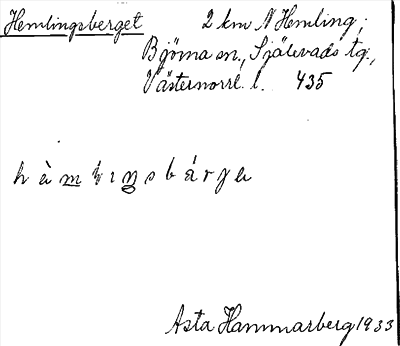 Hemlingsberget 2 km N Hemling,
Björna sn., Själevads tg.,
Västernorrl. l. 435
Asta Hammarberg 1933